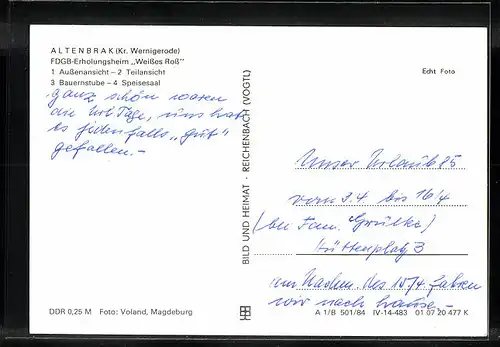 ALTENBRAK (Kr. Wernigerode)
FDGB-Erholungsheim „Weißes Roß"
1 Außenansicht – 2 Teilansicht
3 Bauernstube – 4 Speisesaal
ganz schön waren
die Url. Tage, uns hat
es jedenfalls „gut"
gefallen.–
BILD UND HEIMAT · REICHENBACH (VOGTL)
Echt Foto
Unser Urlaub 85
vom 3.4 bis 16/4
(bei Fam. Grulke)
Hüttenplatz 3
am Nachm. des 15/4. fahren
wir nach hause –
DDR 0,25 M Foto: Voland, Magdeburg
A 1/B 501/84 IV-14-483 01 07 20 477 K